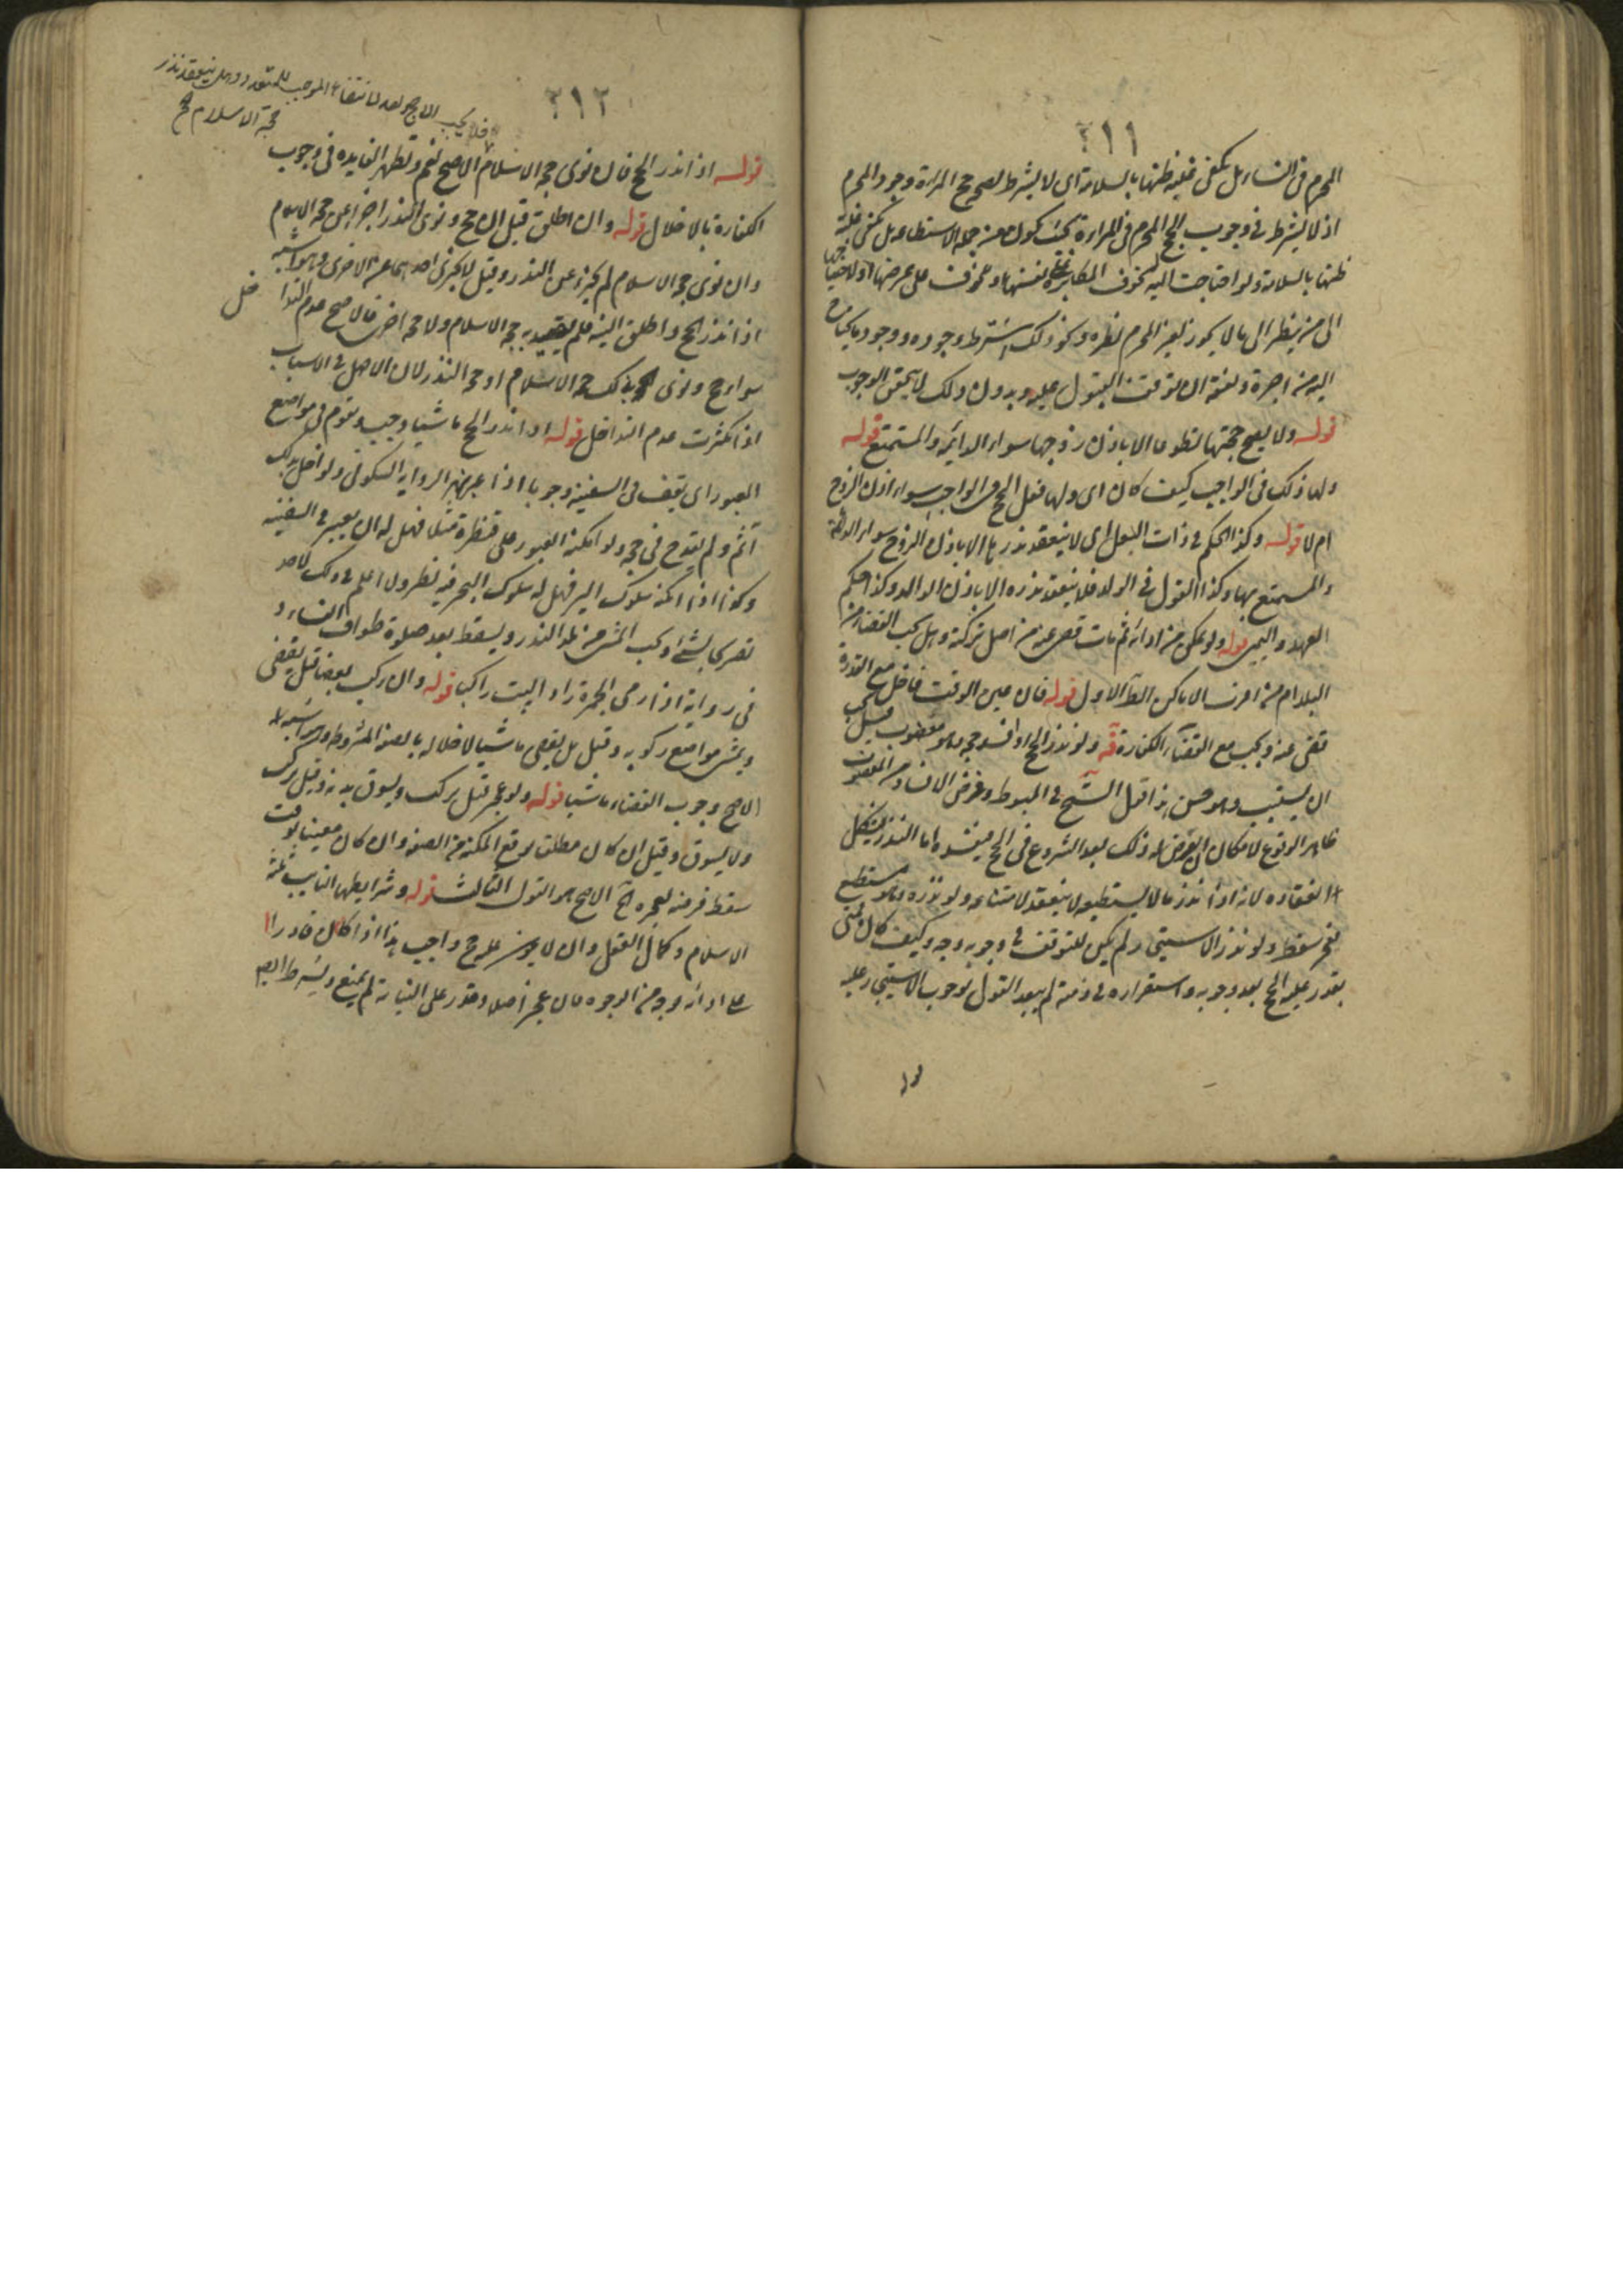 ٢١١
المحرم فى النساء بل يكفى غلبة ظنها بالسلامة اى لا يشترط لصحة حج المراة وجود المحرم
اذ لا يشترط فى وجوب الحج المحرم فى المراءة بحيث يكون من جملة الاستطاعة بل يكفى غلبة
ظنها بالسلامة ولو احتاجت اليه لخوف المكابرة على نفسها او خوف على عرضها او لاحتياجها
الى من ينظر الى ما لا يجوز لغير المحرم نظره ونحو ذلك اشترط وجوده ووجود ما يحتاج
اليه من اجرة ونفقة ان توقف القبول عليه وبدون ذلك لا يتحقق الوجوب
قوله ولا يصح حجتها تطوعا الا باذن زوجها سواء الدائم والمستمتع قوله
ولها ذلك فى الواجب كيف كان اى ولها فعل الحج الواجب سواء اذن الزوج
ام لا قوله وكذا الحكم فى ذات البعل اى لا ينعقد نذرها الا باذن الزوج سواء الدائمة
والمستمتع بها وكذا القول فى الولد فلا ينعقد نذره الا باذن الوالد وكذا حكم
العهد واليمين قوله ولو تمكن من ادائه ثم مات قضى عنه من اصل تركته وهل يجب القضاء من
البلد ام من اقرب الاماكن الظ الاول قوله فان عين الوقت فاخل مع القدرة
قضى عنه ويجب مع القضاء الكفارة قه ولو نذر الحج او افسد حجه وهو معضوب قيل يجب
ان يستنيب وهو حسن هذا قول الشيخ فى المبسوط وفرض الافساد من المعضوب
ظاهر الوقوع لامكان العرض له ذلك بعد الشروع فى الحج فيفسد واما النذر فيشكل
انعقاده لانه اذا نذر ما لا يستطيعه لا ينعقد لامتناعه ولو نذره وهو مستطيع
فعجز سقط ولو نذر الاستيجار لم يكن للتوقف فى وجوبه وجه وكيف كان فمتى
تعذر عليه الحج بعد وجوبه واستقراره فى ذمته لم يبعد القول بوجوب الاستيجار عليه
قوله
٢١٢
فلا يجب الا حج واحد لانتفاء الموجب للتعدد وهل ينعقد نذر
حجة الاسلام ح
قوله اذا نذر الحج فان نوى حجة الاسلام الاصح نعم وتظهر الفايده فى وجوب
الكفاره بالاخلال قوله وان اطلق قيل ان حج ونوى النذر اجزا عن حجة الاسلام
وان نوى حجة الاسلام لم يجز عن النذر وقيل لا يجزى احديهما عن الاخرى وهو اشبه
اذا نذر الحج واطلق النية فلم يقيده بحجة الاسلام ولا حجة اخرى فالاصح عدم التداخل
سواء حج ونوى بذلك حجة الاسلام او حجة النذر لان الاصل فى الاسباب
اذا كثرت عدم التداخل قوله اذا نذر الحج ماشيا وجب ويقوم فى مواضع
العبور اى يقف فى السفينة وجوبا اذا عبر نهرا لرواية السكونى ولو اخل بذلك
آثم ولم يقدح فى حجه ولو امكنه العبور على قنطرة مثلا فهل له ان يعبر فى السفينه
وكذا اذا امكنه سلوك البر فهل له سلوك البحر فيه نظر ولا اعلم فى ذلك لاحد
تصريحا بشئ ويجب المشى من بلد النذر ويسقط بعد صلوة طواف النساء و
فى رواية اذا رمى الجمرة زار البيت راكبا قوله وان ركب بعضا قيل يقضى
ويمشى مواضع ركوبه وقيل بل يقضى ماشيا لاخلاله بالصفة المشروطة وهو اشبه
الاصح وجوب القضاء ماشيا قوله ولو عجز قيل يركب ويسوق بدنة وقيل يركب
ولا يسوق وقيل ان كان مطلقا توقع المكنة من الصفة وان كان معينا بوقت
سقط فرضه لعجزه الخ الاصح هو القول الثالث قوله وشرايطها النايب ثلثة
الاسلام وكمال العقل وان لا يكون عليه حج واجب هذا اذا كان قادرا
على ادائه بوجه من الوجوه فان عجز اصلا وقدر على النيابة لم يمنع ويشترط ايضا